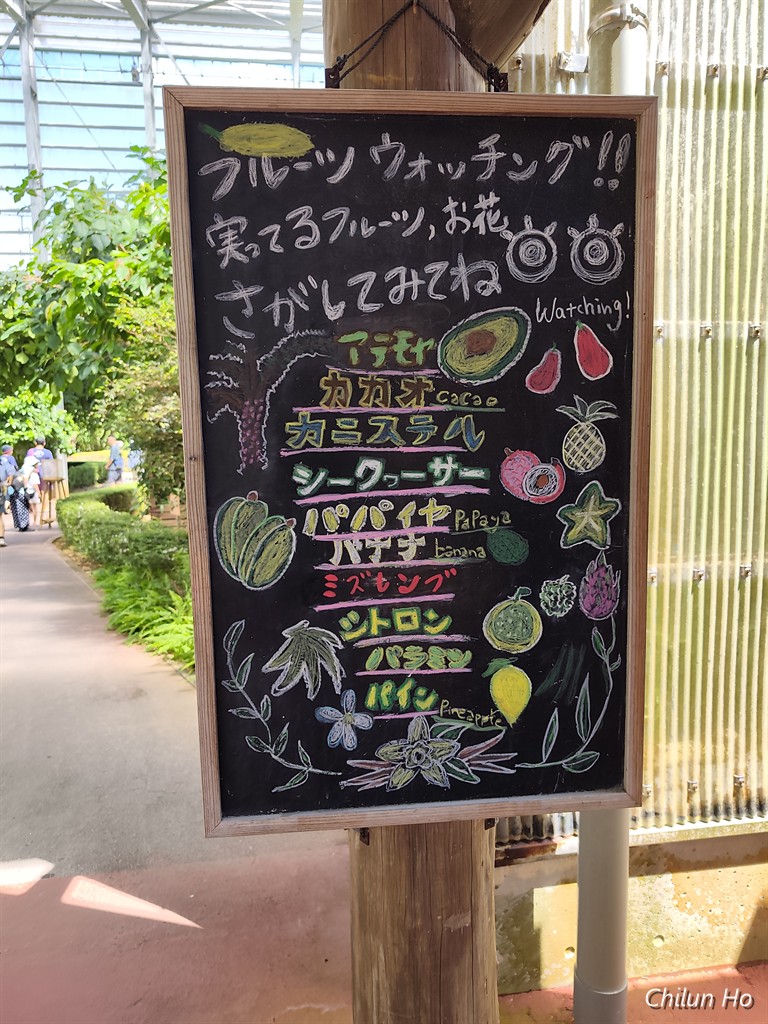 フルーツ ウォッチング!!
実ってるフルーツ,お花
さがしてみてね
Watching!
アテモヤ
カカオ cacao
カニステル
シークヮーサー
パパイヤ Papaya
バナナ banana
ミズレンブ
シトロン
パラミツ
パイン Pineapple
Chilun Ho